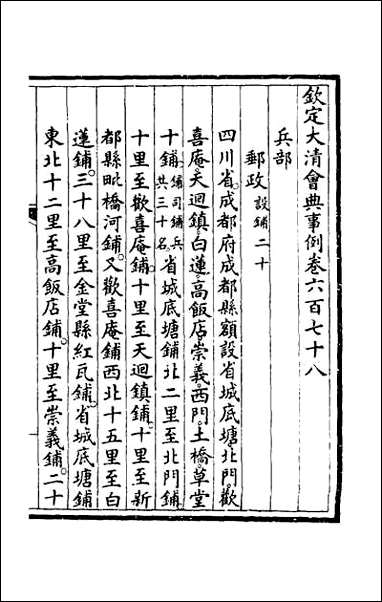 欽定大清會典事例卷六百七十八
兵部
郵政 設鋪二十
四川省。成都府成都縣額設省城底塘。北門。歡
喜庵。天迴鎮。白蓮。高飯店。崇義。西門。土橋。草堂
十鋪。鋪司鋪兵共三十名。省城底塘鋪北二里至北門鋪。
十里至歡喜庵鋪。十里至天迴鎮鋪。十里至新
都縣毗橋河鋪。又歡喜庵鋪西北十五里至白
蓮鋪。三十八里至金堂縣紅瓦鋪。省城底塘鋪
東北十二里至高飯店鋪。十里至崇義鋪。二十